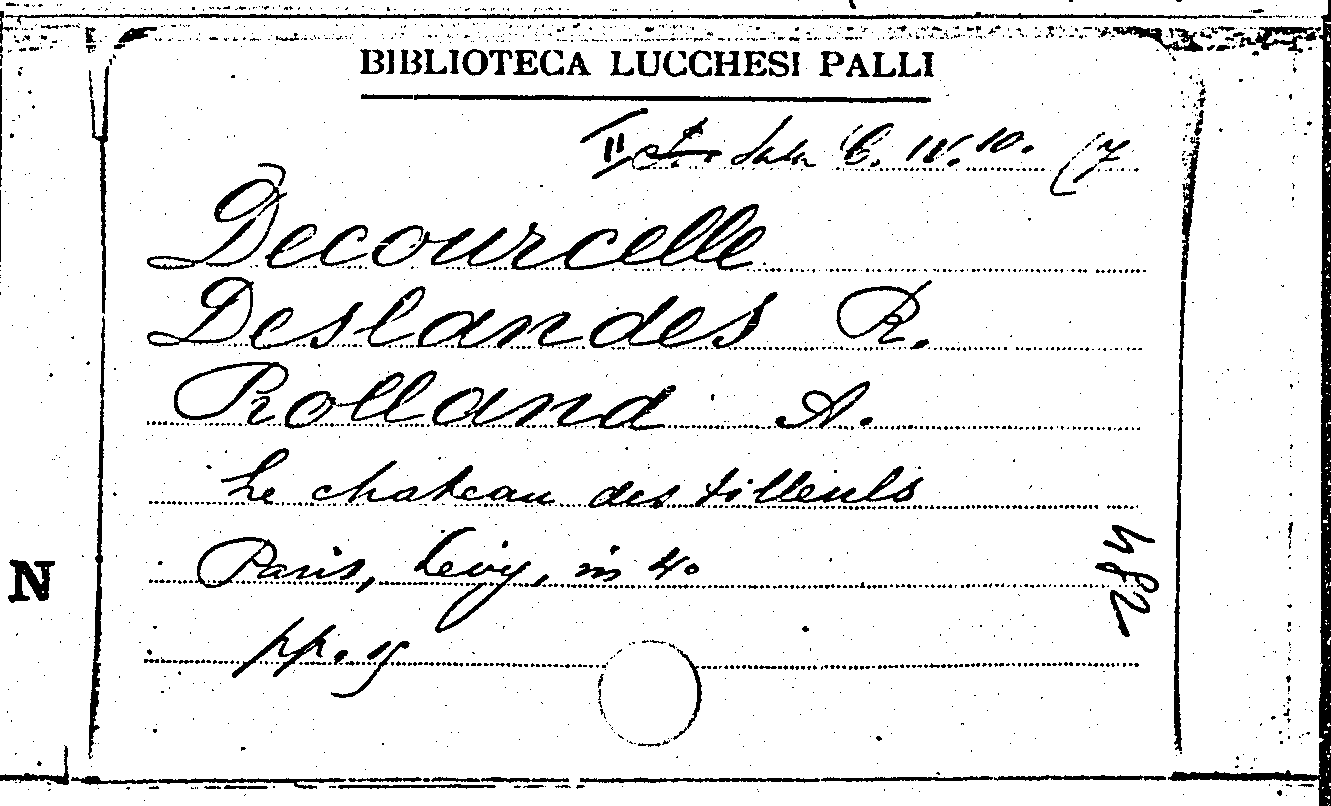 BIBLIOTECA LUCCHESI PALLI
II Sala C. IV. 10. (7
Decourcelle
Deslandes R.
Rolland A.
Le chateau des tilleuls
Paris, Levy, in 4o
pp. 15
N